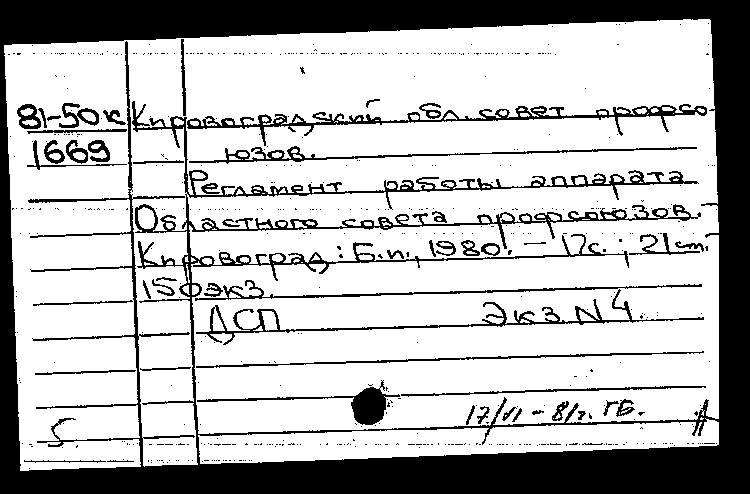 81-50к Кировоградский обл. совет профсо-
1669 юзов.
Регламент работы аппарата
Областного совета профсоюзов. -
Кировоград : Б.и., 1980. - 17с. ; 21 cm. -
150 экз.
ДСП Экз N 4.
17/VI - 81г. ГБ.
5.